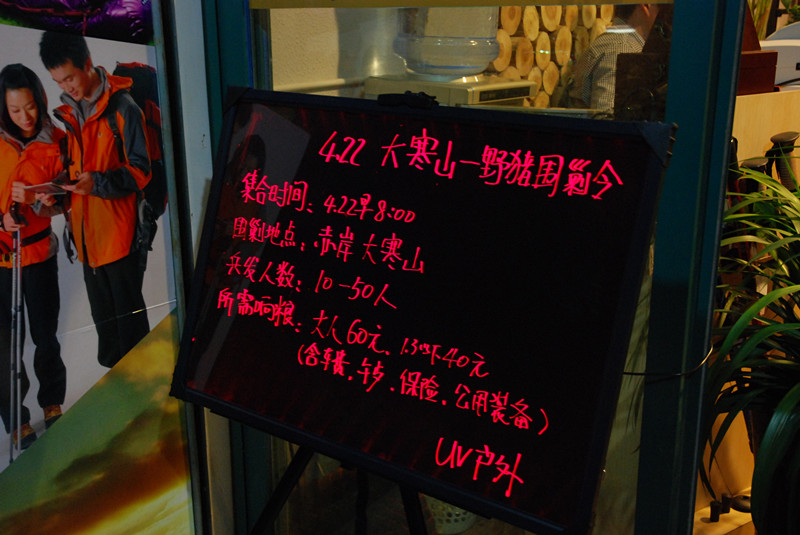 4.22 大寒山—野猪围剿令
集合时间：4.22早8:00
围剿地点：赤岸大寒山
兵发人数：10—50人
所需响粮：大人60元、1.3以下40元
（含车费、午歺、保险、公用装备）
UV户外